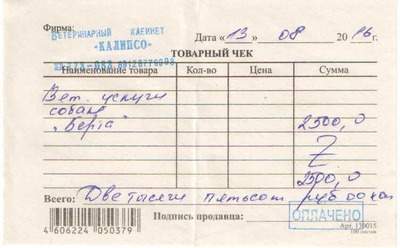 Фирма:
ВЕТЕРИНАРНЫЙ КАБИНЕТ
«КАЛИПСО»
Дата «13» 08 2016 г.
ТОВАРНЫЙ ЧЕК
Наименование товара Кол-во Цена Сумма
Вет. услуги
собаке
"Берта" 2500,0
Z
2500,0
Всего: Две тысячи пятьсот руб 00 коп
Подпись продавца:
ОПЛАЧЕНО
4 606224 050379
Арт. 130015